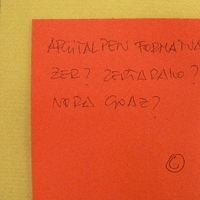 ARGITALPEN FORMATUA
ZER? ZERTARAKO?
NORA GOAZ?